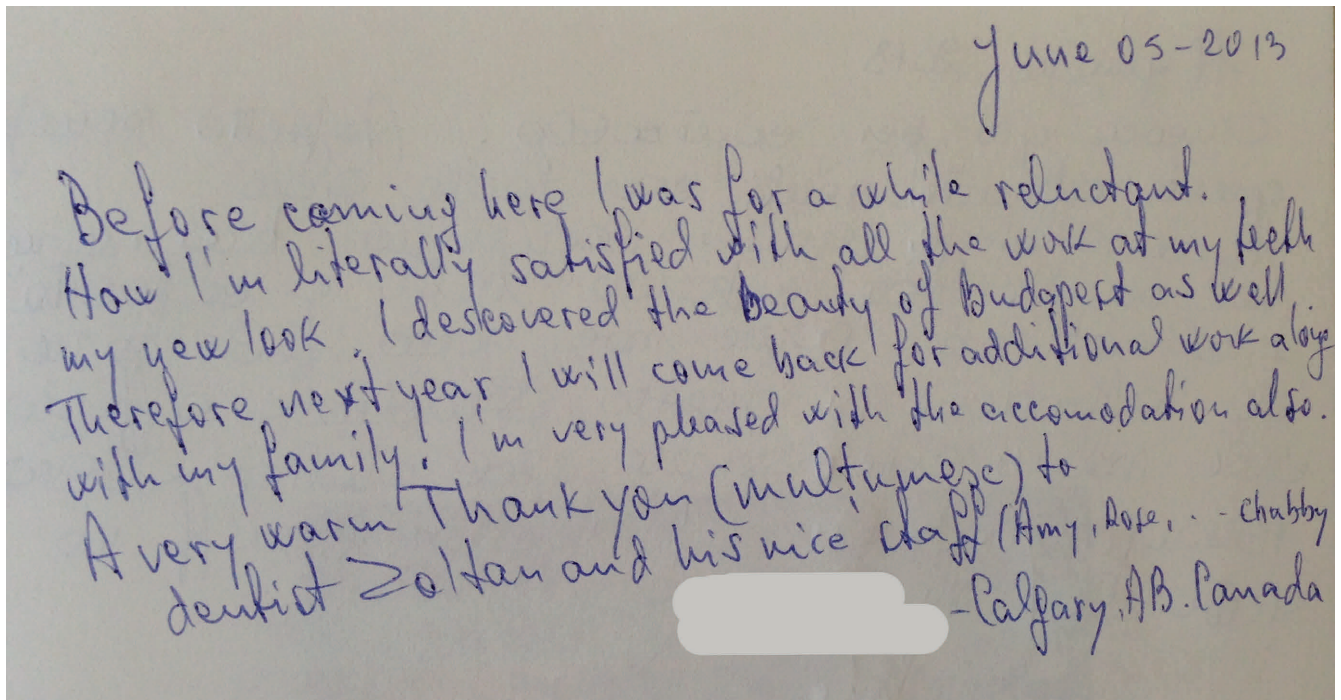 June 05-2013
Before coming here I was for a while reluctant.
Now I'm literally satisfied with all the work at my teeth
my new look. I descovered the beauty of Budapest as well.
Therefore next year I will come back for additional work along
with my family. I'm very pleased with the accomodation also.
A very warm Thank you (multumesc) to
dentist Zoltan and his nice staff (Amy, Rose, ... chubby
-Calgary, AB. Canada